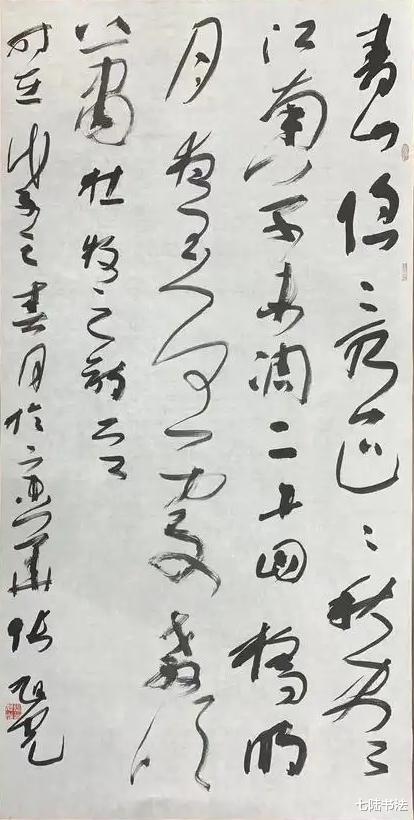 青山隐々水迢々秋尽
江南草未凋二十四桥明
月夜玉人何处教吹
箫 杜牧之诗
时在 之春月於 张旭光
七陆书法